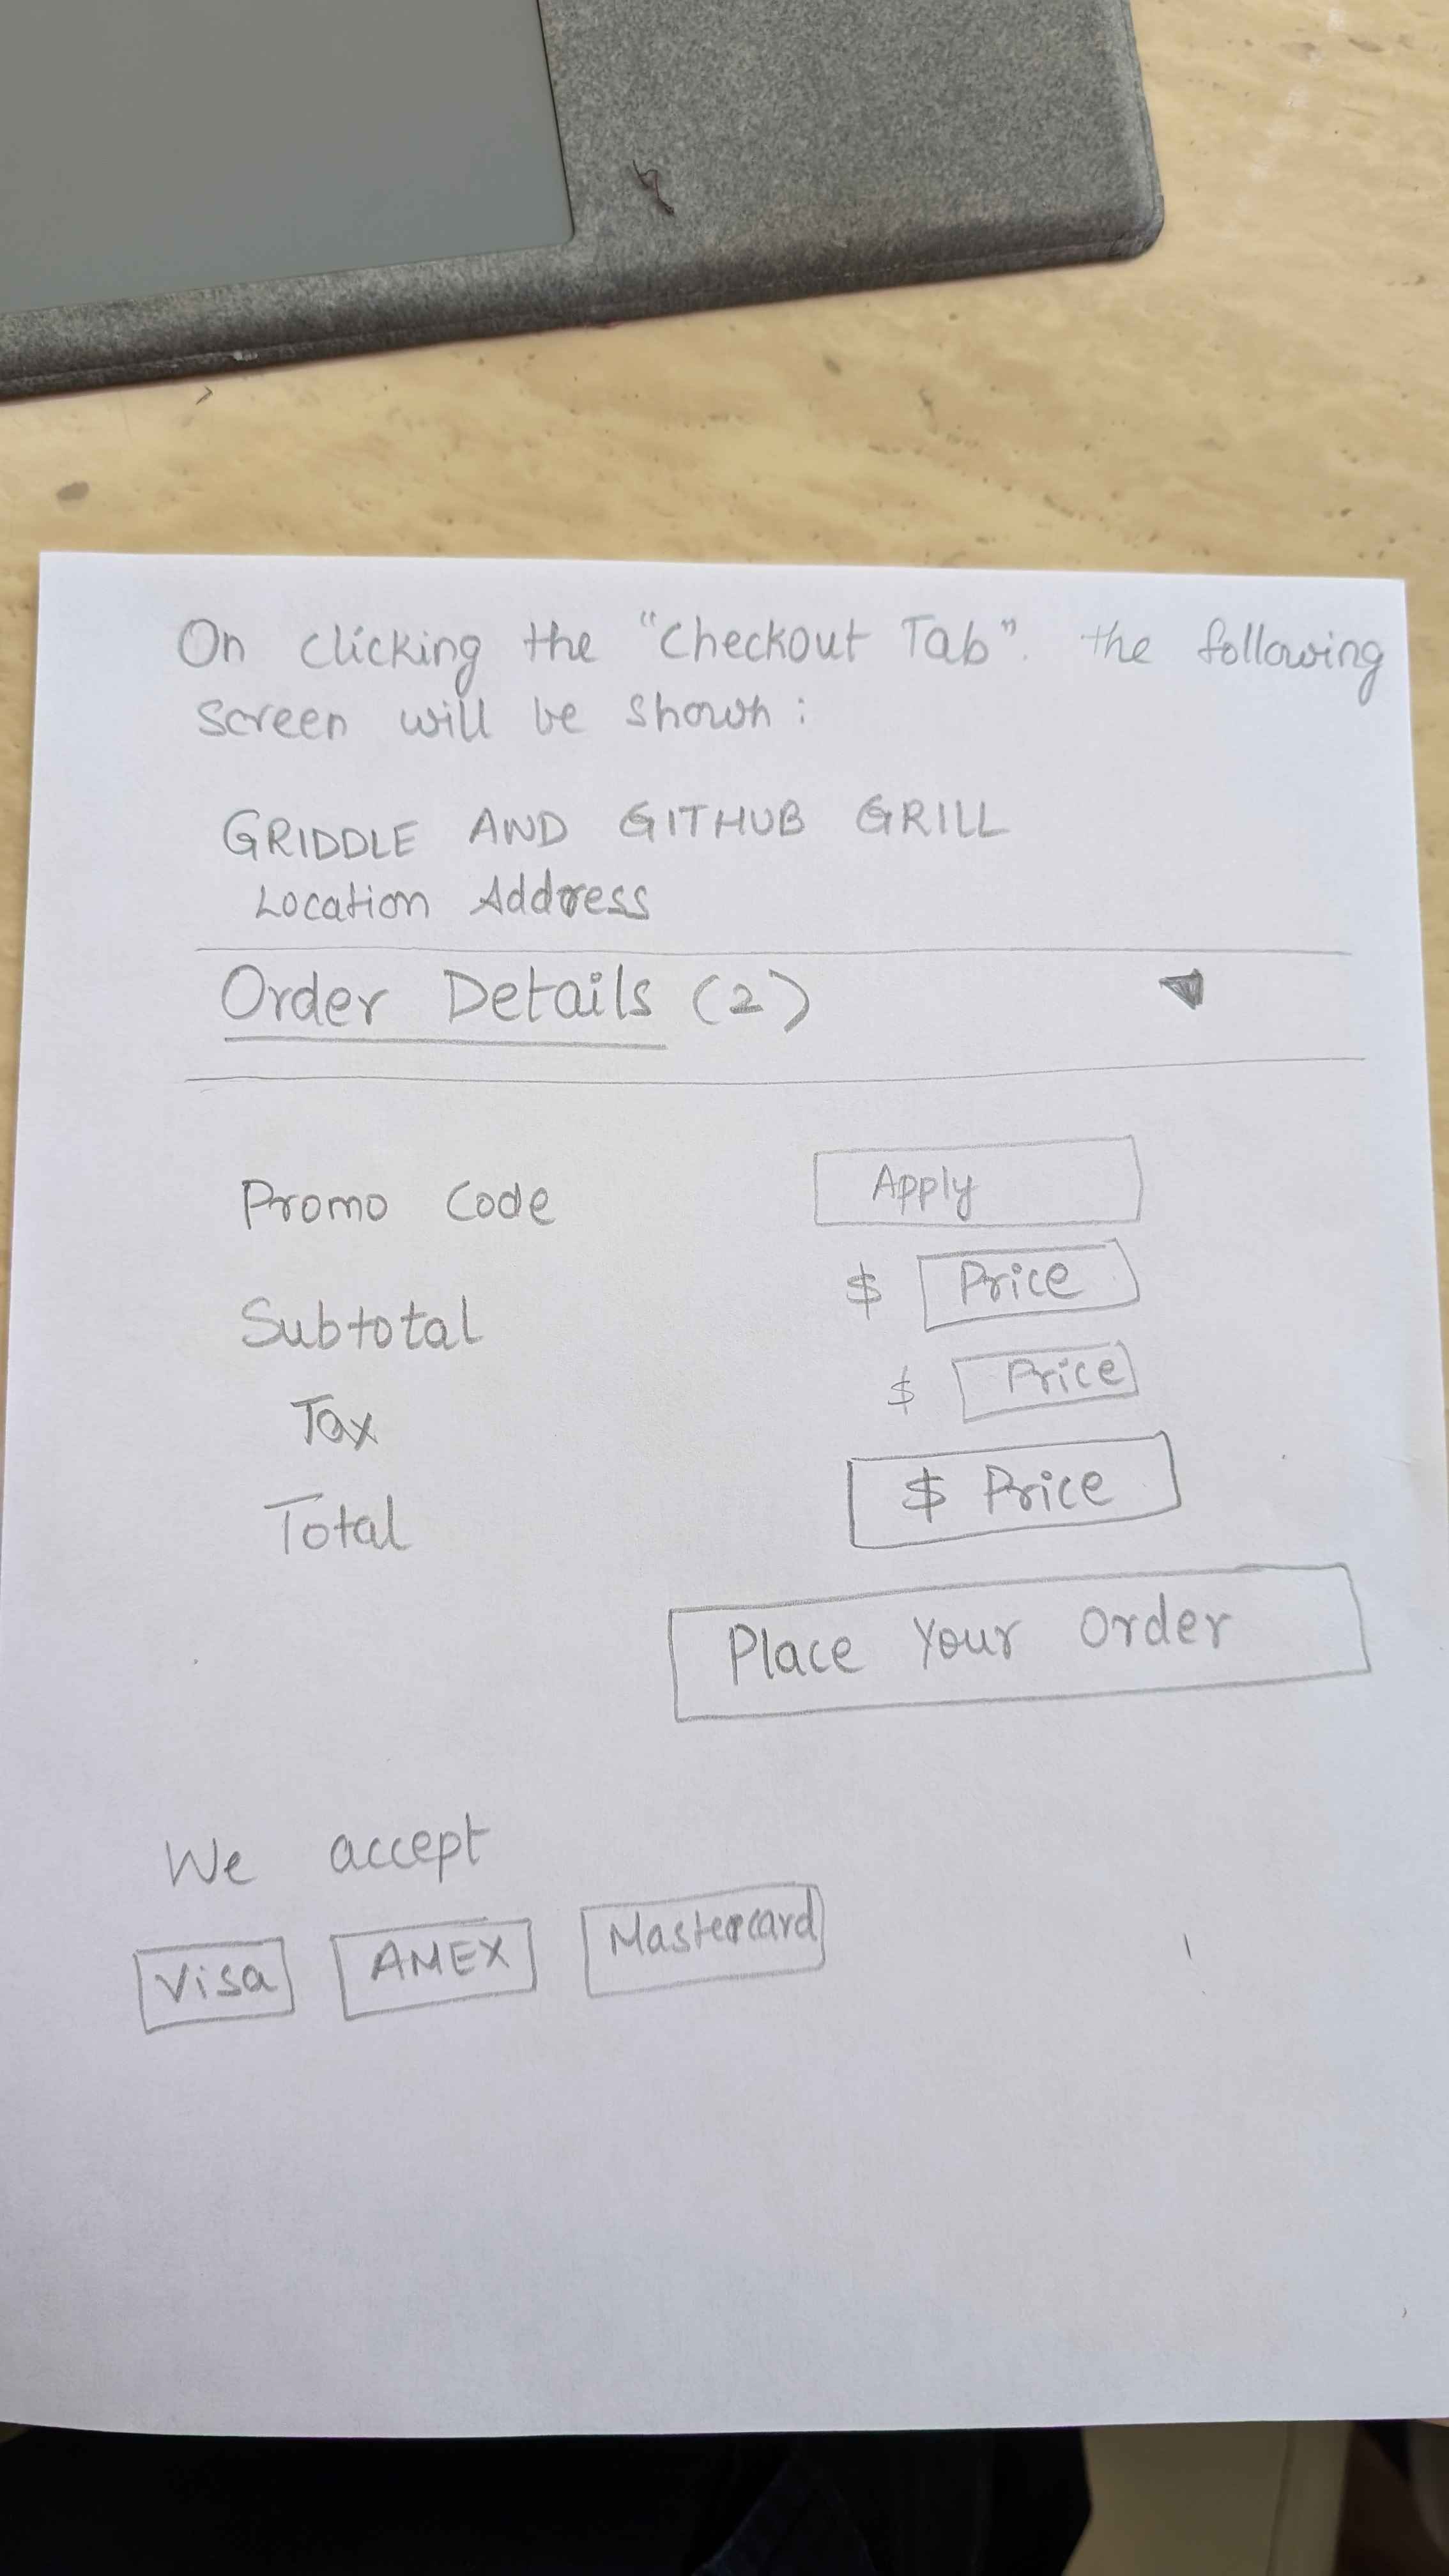 On clicking the "Checkout Tab". the following
screen will be shown:
GRIDDLE AND GITHUB GRILL
Location Address
Order Details (2)
Promo Code Apply
Subtotal $ Price
Tax $ Price
Total $ Price
Place Your Order
We accept
Visa AMEX Mastercard